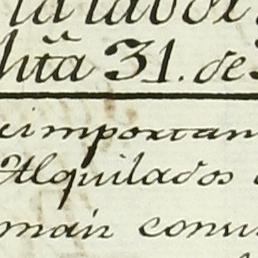 la labor
hta 31. de
importan
Alquilados
mais conu